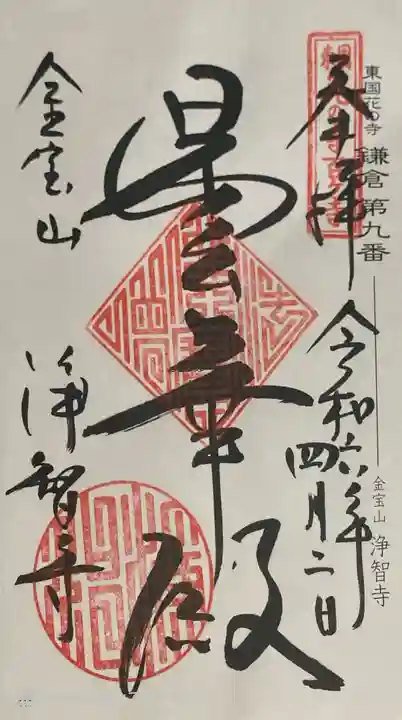 東国花の寺 鎌倉 第九番
金宝山 浄智寺
奉拝
令和六年
四月二日
曇華殿
金宝山
浄智寺